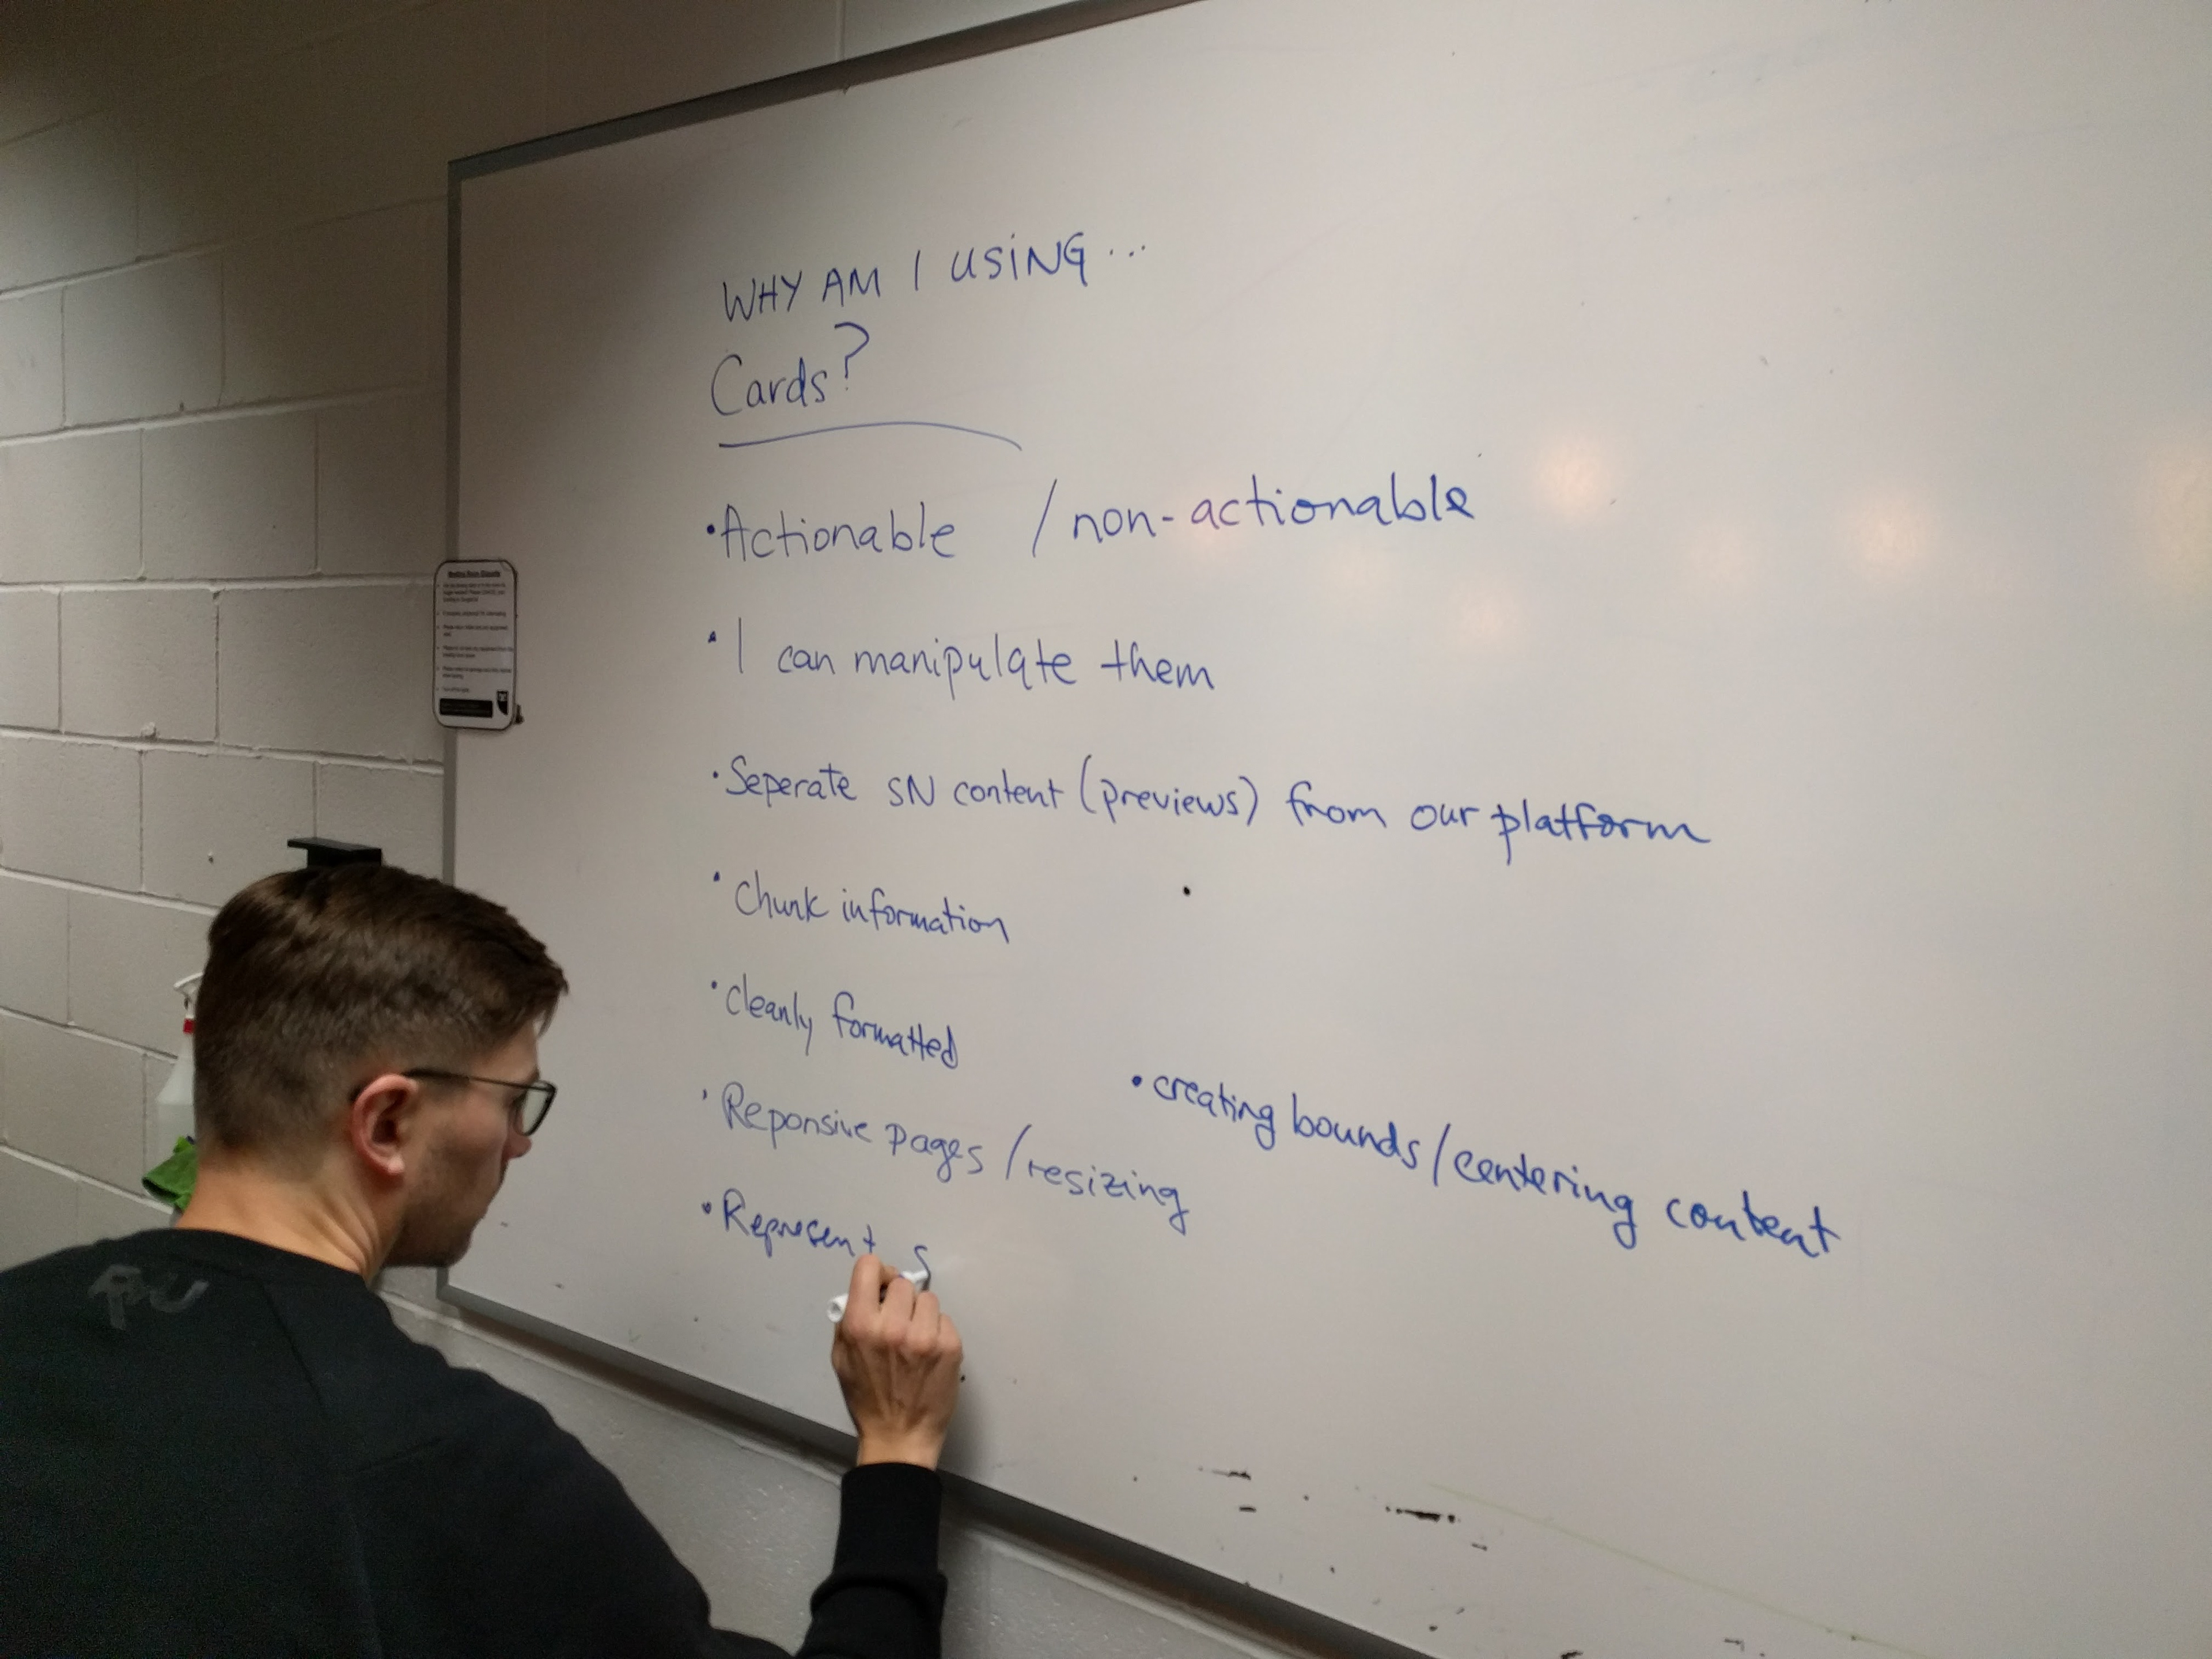 WHY AM I USING...
Cards?
• Actionable / non-actionable
• I can manipulate them
• Seperate SN content (previews) from our platform
• Chunk information
• cleanly formatted
• Reponsive pages / resizing
• creating bounds / centering content
• Represent s